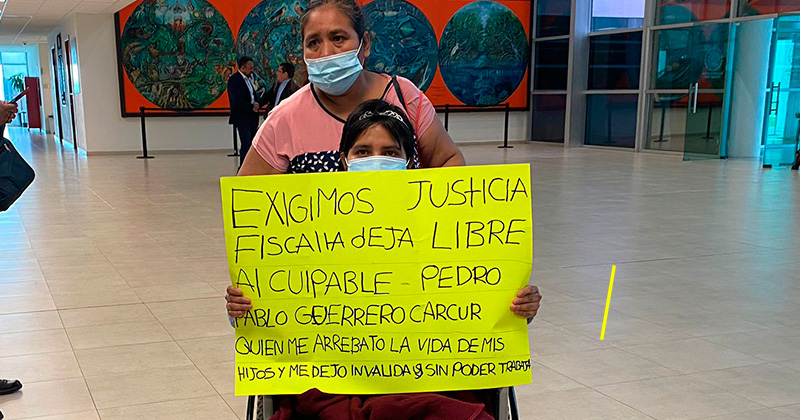 EXIGIMOS JUSTICIA
FISCALIA dEJA LIBRE
Al CUlPABLE - PEDRO
PABLO GUERRERO CARCUR
QUIEN ME ARREBATO LA VIDA DE MIS
HIJOS Y ME DEJO INVALIDA y SIN PODER TRABAJ